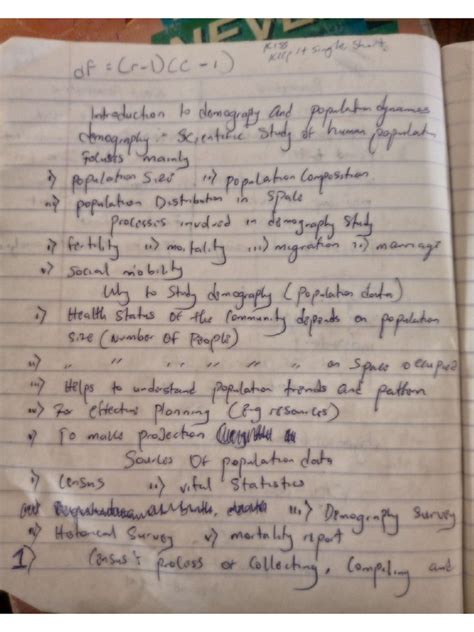 NEVE
KISS
Keep it single short
df = (r-1)(c-1)
Introduction to demography and population dynamics
demography: Scientific Study of human population
Focuses mainly
i) population Size ii) population Composition
iii) population Distribution in Space
Processes involved in demography study
i) fertility ii) mortality iii) migration iv) marriage
v) Social mobility
Why to Study demography (population data)
i) Health Status of the Community depends on population
Size (Number of People)
ii) " " " " " " " on Space occupied
iii) Helps to understand population trends and pattern
iv) For effective Planning (e.g resources)
v) To make projection
Sources of population data
i) Census ii) vital Statistics
iii) Demography Survey
iv) Historical Survey v) mortality report
1) Census: process of Collecting, Compiling and